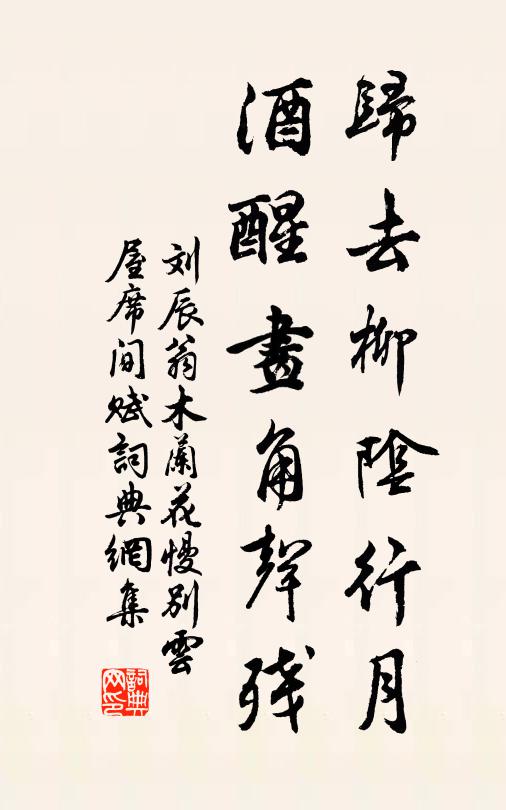 歸去柳陰行月
酒醒畫角聲残
刘辰翁木蘭花慢别雲
屋席间赋詞典網集
詞典网印